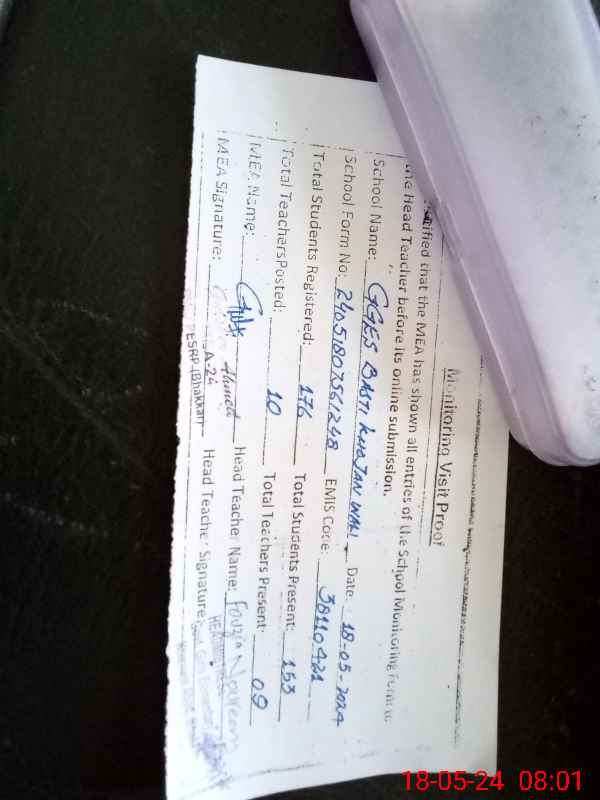 Monitoring Visit Proof
that the MEA has shown all entries of the School Monitoring Form to
the Head Teacher before its online submission.
School Name: GGES BASTI KHOJAN WALI Date: 18-05-2024
School Form No: EMIS Code: 38110421
Total Students Registered: 176 Total Students Present: 153
Total Teachers Posted: 10 Total Teachers Present: 09
MEA Name: Ahmad Head Teacher Name: Fouzia Noureen
MEA Signature: Head Teacher Signature:
A-24
PESRP (Bhakkar)
18-05-24 08:01